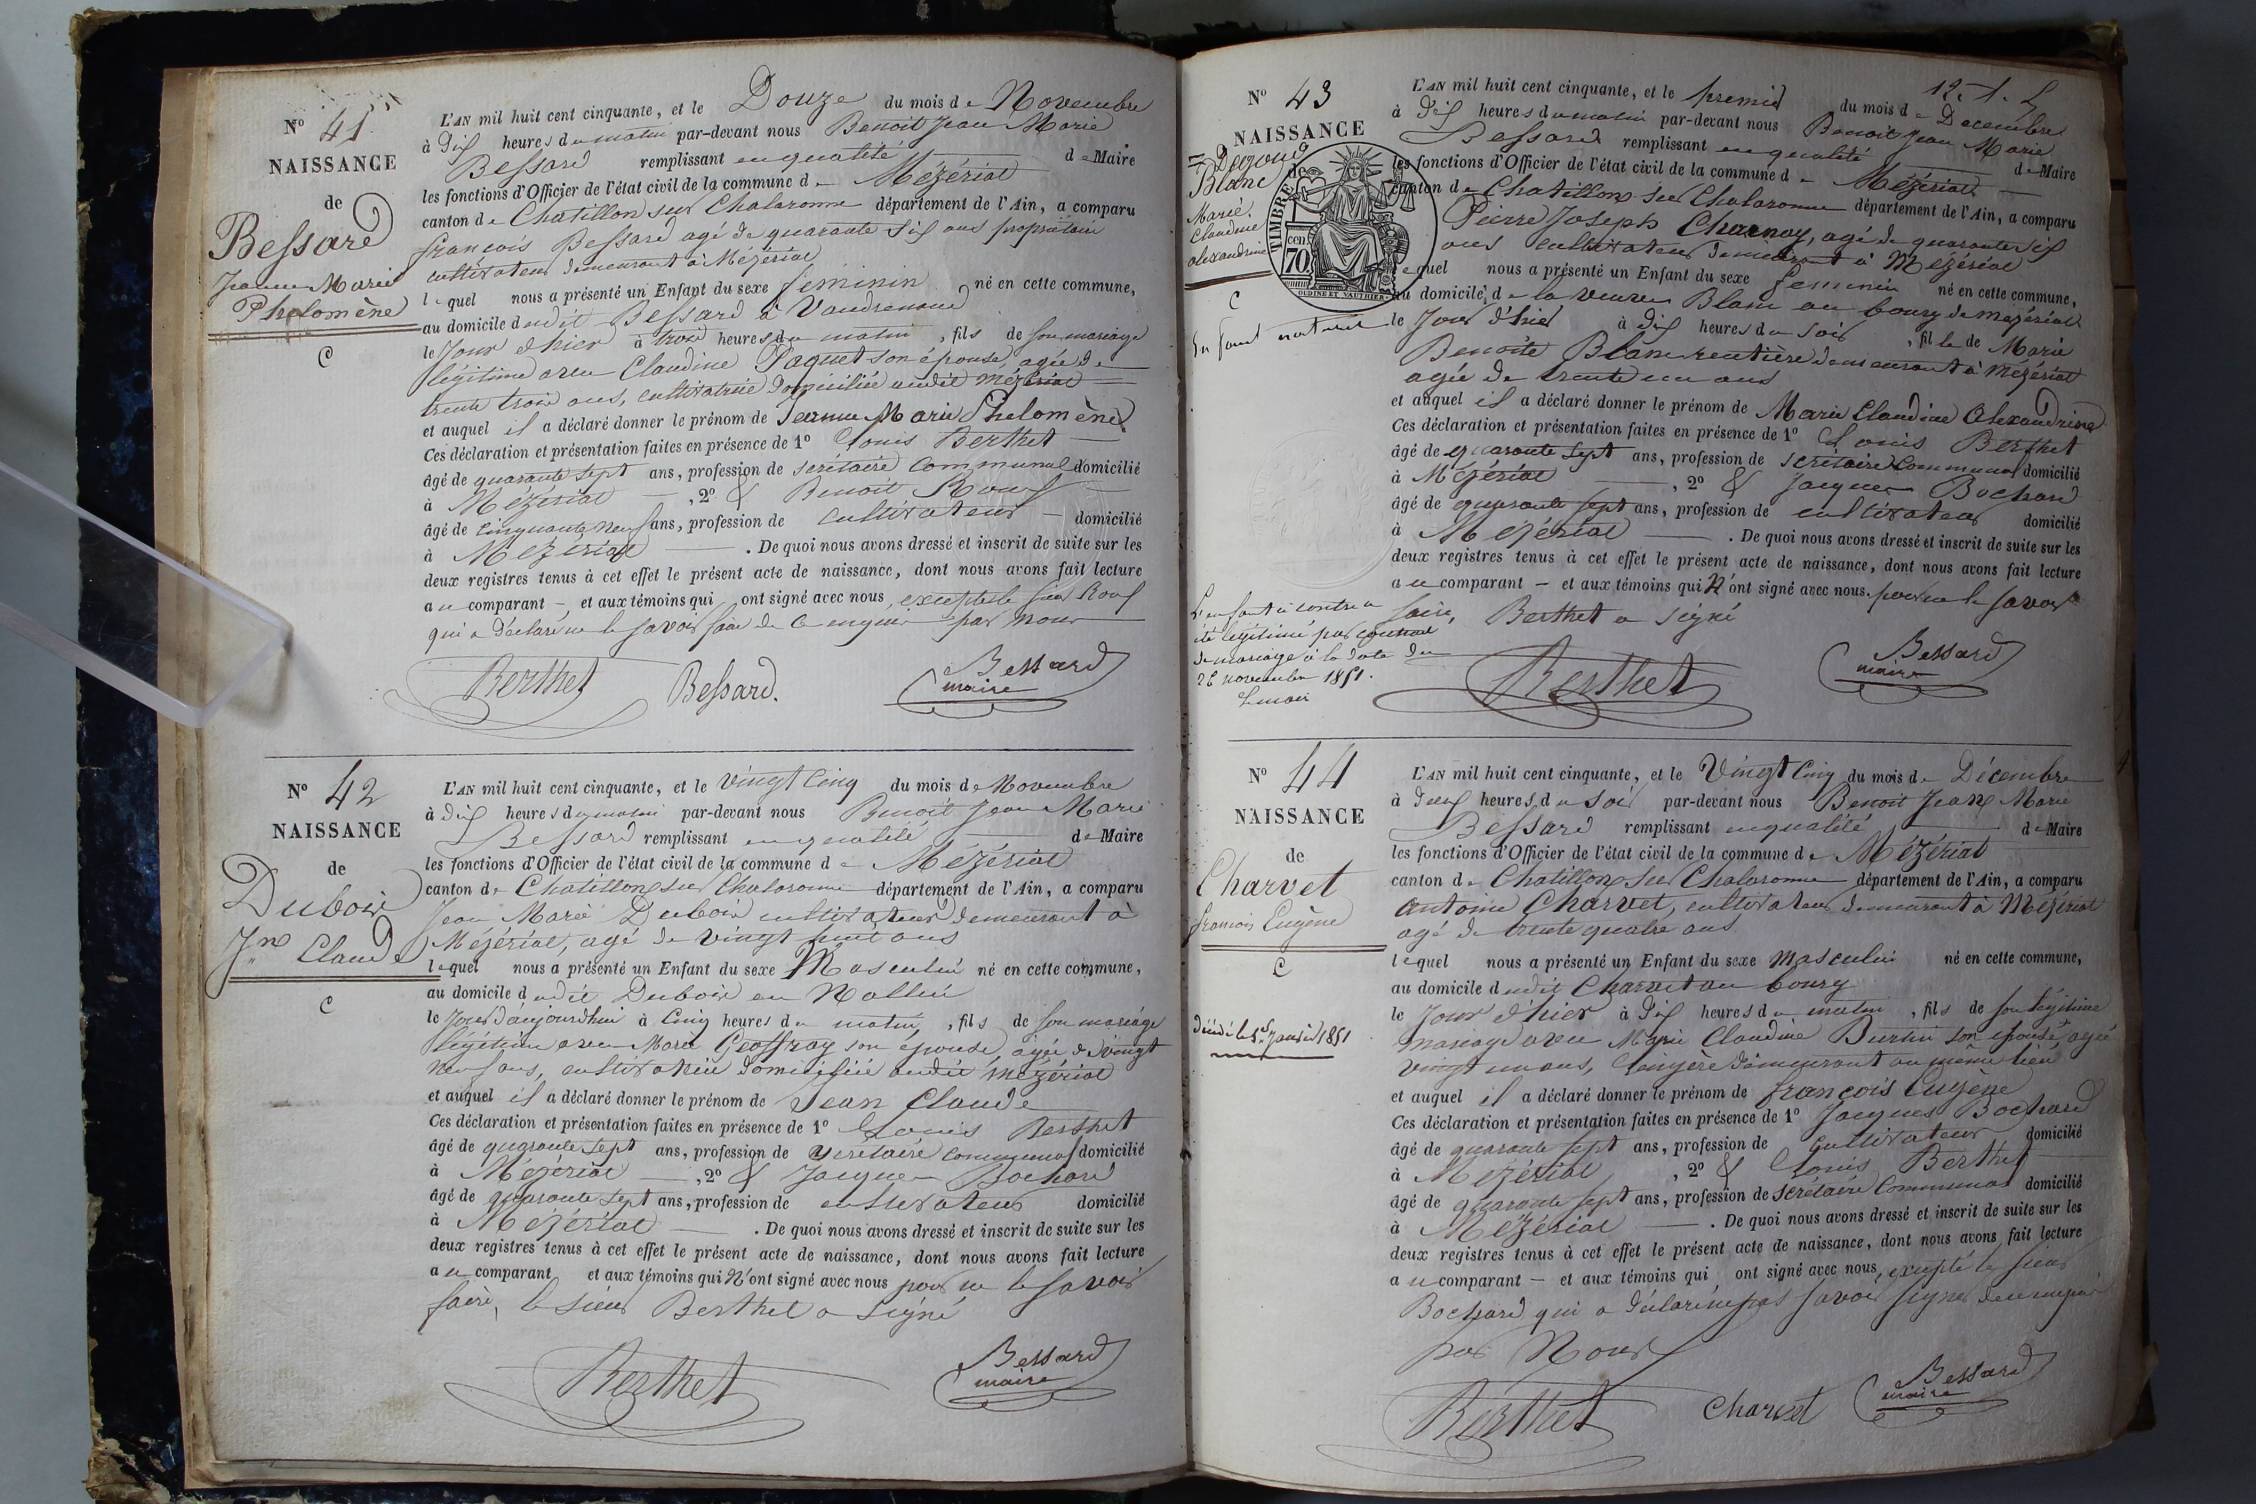 N° 41
NAISSANCE
de
Bessard
Jeanne Marie
Phelomène
C
L'AN mil huit cent cinquante, et le Douze du mois de Novembre
à Dix heures du matin par-devant nous Benoit Jean Marie
Bessard remplissant en qualité de Maire
les fonctions d'Officier de l'état civil de la commune de Mézériat
canton de Chatillon sur Chalaronne département de l'Ain, a comparu
françois Bessard agé de quarante six ans propriétaire
cultivateur demeurant à Mézériat
lequel nous a présenté un Enfant du sexe féminin né en cette commune,
au domicile dudit Bessard à
le Jour d'hier à trois heures du matin, fils de son mariage
légitime avec Claudine Paquet son épouse, agée de
trente trois ans, cultivatrice domiciliée audit Mézériat
et auquel il a déclaré donner le prénom de Jeanne Marie Phelomène
Ces déclaration et présentation faites en présence de 1° Louis Berthet
âgé de quarante sept ans, profession de secrétaire communal domicilié
à Mézériat, 2° & Benoit Roux
âgé de cinquante neuf ans, profession de cultivateur domicilié
à Mézériat. De quoi nous avons dressé et inscrit de suite sur les
deux registres tenus à cet effet le présent acte de naissance, dont nous avons fait lecture
au comparant et aux témoins qui ont signé avec nous, excepté le sieur Roux
qui a déclaré ne le savoir faire de ce enquis par nous
Berthet Bessard. Bessard
maire
N° 42
NAISSANCE
de
Dubois
Jn Claude
C
L'AN mil huit cent cinquante, et le vingt cinq du mois de Novembre
à Dix heures du matin par-devant nous Benoit Jean Marie
Bessard remplissant en qualité de Maire
les fonctions d'Officier de l'état civil de la commune de Mézériat
canton de Chatillon sur Chalaronne département de l'Ain, a comparu
Jean Marie Dubois cultivateur demeurant à
Mézériat, agé de vingt huit ans
lequel nous a présenté un Enfant du sexe Masculin né en cette commune,
au domicile dudit Dubois en
le Jour d'aujourdhui à Cinq heures du matin, fils de son mariage
légitime avec Marie Geoffray son épouse, agée de vingt
neuf ans, cultivatrice domiciliée audit Mézériat
et auquel il a déclaré donner le prénom de Jean Claude
Ces déclaration et présentation faites en présence de 1° Louis Berthet
âgé de quarante sept ans, profession de secrétaire communal domicilié
à Mézériat, 2° & Jacques Bochard
âgé de quarante sept ans, profession de cultivateur domicilié
à Mézériat. De quoi nous avons dressé et inscrit de suite sur les
deux registres tenus à cet effet le présent acte de naissance, dont nous avons fait lecture
au comparant et aux témoins qui N'ont signé avec nous pour ne le savoir
faire, le sieur Berthet a signé
Berthet Bessard
maire
N° 43
NAISSANCE
de
Blanc
Marie
Claudine
alexandrine
TIMBRE
cen
70
OUDINE ET VAUTHIER
C
Enfant naturel
L'AN mil huit cent cinquante, et le premier du mois de Decembre
à Dix heures du matin par-devant nous Benoit Jean Marie
Bessard remplissant en qualité de Maire
les fonctions d'Officier de l'état civil de la commune de Mézériat
canton de Chatillon sur Chalaronne département de l'Ain, a comparu
Pierre Joseph Charnay, agé de quarante six
ans cultivateur demeurant à Mézériat
lequel nous a présenté un Enfant du sexe feminin né en cette commune,
au domicile de la veuve Blanc au bourg de mézériat
le Jour d'hier à dix heures du soir, fille de Marie
Benoite Blanc rentière demeurant à Mézériat
agée de trente un ans
et auquel il a déclaré donner le prénom de Marie Claudine Alexandrine
Ces déclaration et présentation faites en présence de 1° Louis Berthet
âgé de quarante sept ans, profession de secrétaire communal domicilié
à Mézériat, 2° & Jacques Bochard
âgé de quarante sept ans, profession de cultivateur domicilié
à Mézériat. De quoi nous avons dressé et inscrit de suite sur les
deux registres tenus à cet effet le présent acte de naissance, dont nous avons fait lecture
au comparant et aux témoins qui N'ont signé avec nous pour ne le savoir
faire, Berthet a signé
L'enfant ci contre a
été légitimé par contrat
de mariage à la date du
26 novembre 1851.
Berthet Bessard
maire
N° 44
NAISSANCE
de
Charvet
francois Eugène
C
Décédé le 5 janvier 1851
L'AN mil huit cent cinquante, et le Vingt Cinq du mois de Décembre
à deux heures du soir par-devant nous Benoit Jean Marie
Bessard remplissant en qualité de Maire
les fonctions d'Officier de l'état civil de la commune de Mézériat
canton de Chatillon sur Chalaronne département de l'Ain, a comparu
Antoine Charvet, cultivateur demeurant à Mézériat
agé de trente quatre ans
lequel nous a présenté un Enfant du sexe Masculin né en cette commune,
au domicile dudit Charvet au bourg
le Jour d'hier à Dix heures du matin, fils de son légitime
mariage avec Marie Claudine Burtin son épouse, agée
vingt un ans, demeurant au même lieu
et auquel il a déclaré donner le prénom de françois Eugène
Ces déclaration et présentation faites en présence de 1° Jacques Bochard
âgé de quarante sept ans, profession de Cultivateur domicilié
à Mézériat, 2° & Louis Berthet
âgé de quarante sept ans, profession de secrétaire Communal domicilié
à Mézériat. De quoi nous avons dressé et inscrit de suite sur les
deux registres tenus à cet effet le présent acte de naissance, dont nous avons fait lecture
au comparant et aux témoins qui ont signé avec nous, excepté le sieur
Bochard qui a déclaré ne pas savoir signer de ce enquis
par Nous
Berthet Charvet Bessard
maire